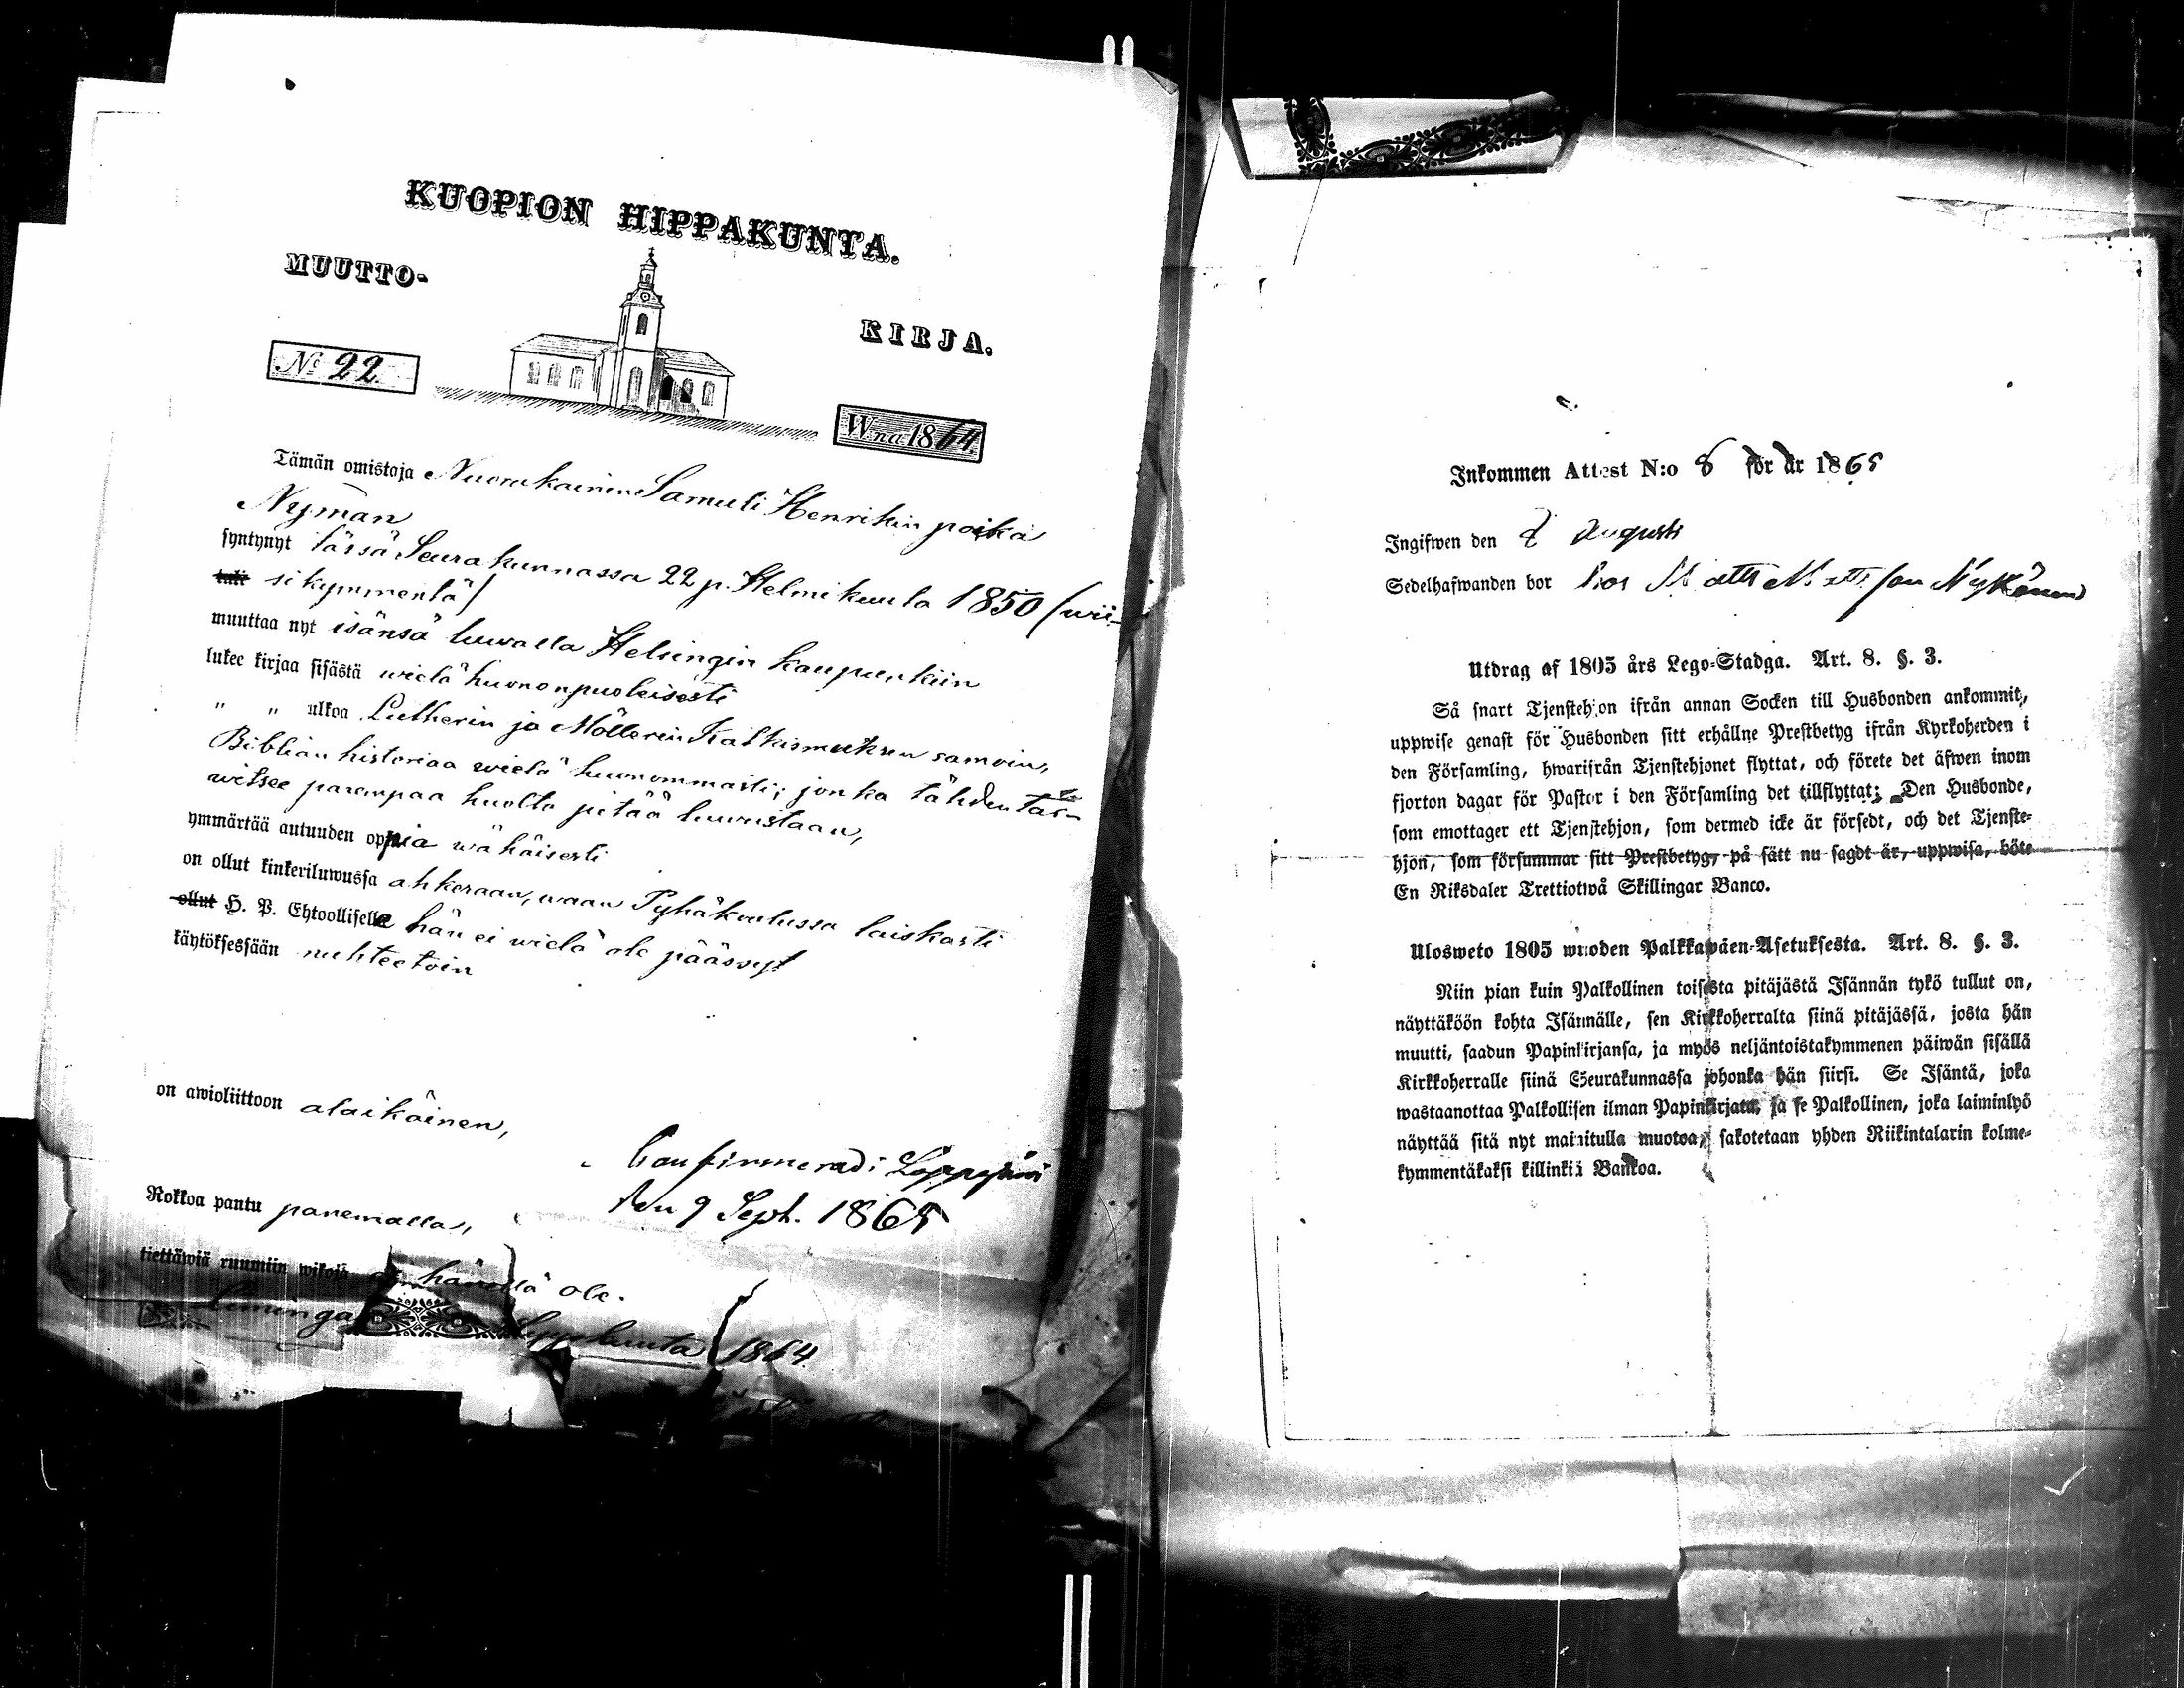 KUOPION HIPPAKUNTA.
MUUTTO- KIRJA.
No 22.
Wna 1864.
Tämän omistaja Nuorukainen Samuli Henrikin poika
Nyman
syntynyt tässä Seurakunnassa 22 p. Helmikuuta 1850 (wii-
tuli sikymmentä)
muuttaa nyt isänsä luwalla Helsingin kaupunkiin
lukee kirjaa sisästä wielä huononpuoleisesti
" " ulkoa Lutherin ja Möllerin Katkismuksen samoin,
Biblian historiaa wielä huonommasti; jonka tähden tar-
witsee parempaa huolta pitää luwustaan,
ymmärtää autuuden oppia wähäisesti
on ollut kinkeriluwussa ahkeraan, waan Pyhäkoulussa laiskasti
ollut H. P. Ehtoollisella hän ei wielä ole päässyt
käytöksessään nuhteetoin
on awioliittoon alaikäinen,
Confirmerad i
den 9 Sept. 1865
Rokkoa pantu panemalla,
tiettäwiä ruumiin wikoja ei hänellä ole.
1864
Inkommen Attest N:o 8 för år 1865
Ingifwen den 8 Augusti
Sedelhafwanden bor hos Matts Mattsson Nykänen
Utdrag af 1805 års Lego-Stadga. Art. 8. §. 3.
Så snart Tjenstehjon ifrån annan Socken till Husbonden ankommit,
uppwise genast för Husbonden sitt erhållne Prestbetyg ifrån Kyrkoherden i
den Församling, hwarifrån Tjenstehjonet flyttat, och förete det äfwen inom
fjorton dagar för Pastor i den Församling det tillflyttat; Den Husbonde,
som emottager ett Tjenstehjon, som dermed icke är försedt, och det Tjenste-
hjon, som försummar sitt Prestbetyg, på sätt nu sagdt är, uppwisa, böte
En Riksdaler Trettiotwå Skillingar Banco.
Ulosweto 1805 wuoden Palkkawäen-Asetuksesta. Art. 8. §. 3.
Niin pian kuin Palkollinen toisesta pitäjästä Isännän tykö tullut on,
näyttäköön kohta Isännälle, sen Kirkkoherralta siinä pitäjässä, josta hän
muutti, saadun Papinkirjansa, ja myös neljäntoistakymmenen päiwän sisällä
Kirkkoherralle siinä Seurakunnassa johonka hän siirsi. Se Isäntä, joka
wastaanottaa Palkollisen ilman Papinkirjata, ja se Palkollinen, joka laiminlyö
näyttää sitä nyt mainitulla muotoa, sakotetaan yhden Riikintalarin kolme-
kymmentäkaksi killinkiä Bankoa.